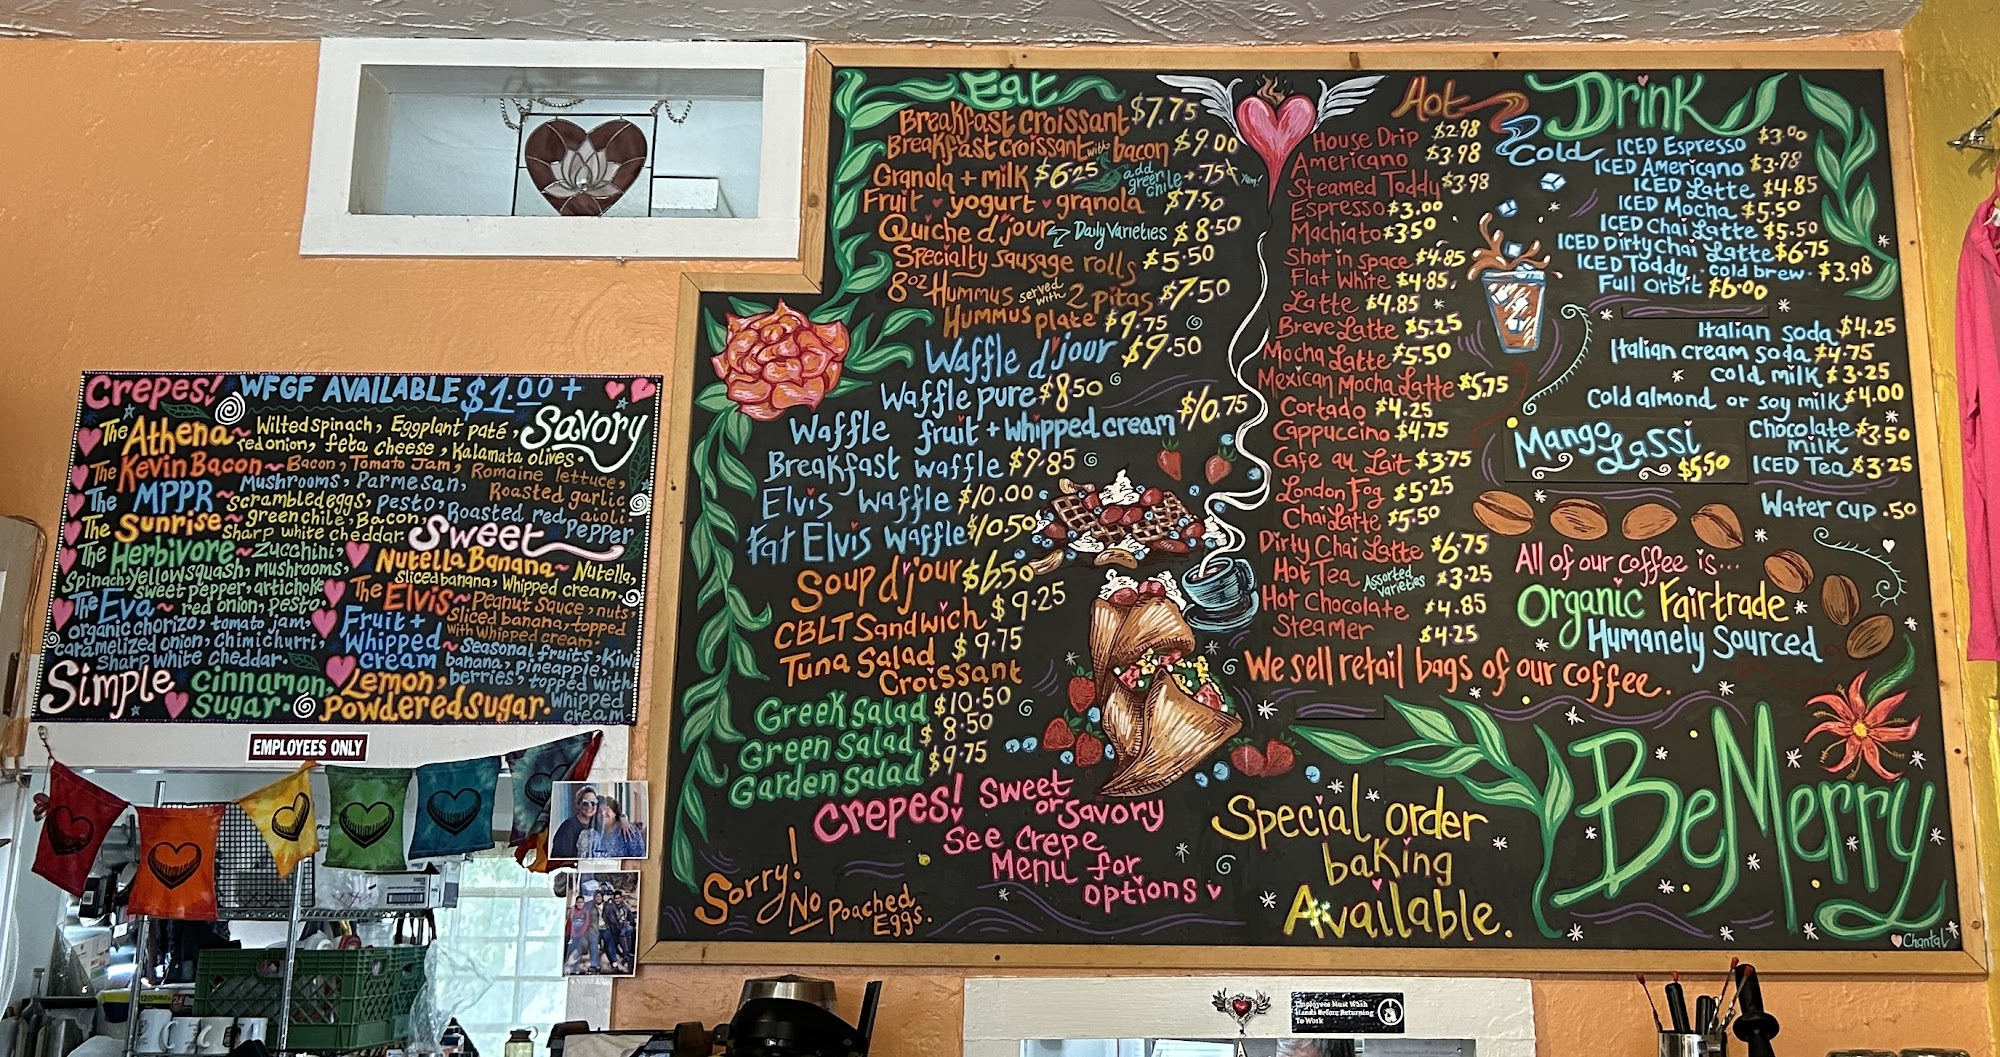 Crepes! WFGF AVAILABLE $1.00 +
Savory
The Athena ~ Wilted spinach, Eggplant paté,
red onion, feta cheese, Kalamata olives.
The Kevin Bacon ~ Bacon, Tomato Jam, Romaine lettuce,
Mushrooms, Parmesan, Roasted garlic
aioli.
The MPPR ~ scrambled eggs, pesto, Roasted red pepper
The Sunrise ~ green chile, Bacon,
sharp white cheddar.
The Herbivore ~ zucchini,
spinach, yellow squash, mushrooms,
sweet pepper, artichoke
The Eva ~ red onion, pesto,
organic chorizo, tomato jam,
caramelized onion, chimichurri,
sharp white cheddar.
Sweet
Nutella Banana ~ Nutella,
sliced banana, whipped cream.
The Elvis ~ Peanut sauce, nuts,
sliced banana, topped
with whipped cream.
Fruit +
Whipped
cream ~ Seasonal fruits, Kiwi
banana, pineapple,
berries, topped with
whipped
cream
Simple
Cinnamon,
Sugar.
Lemon,
Powdered sugar.
EMPLOYEES ONLY
Eat
Breakfast croissant $7.75
Breakfast croissant with bacon $9.00
Granola + milk $6.25 add green chile → .75¢ Yum!
Fruit yogurt granola $7.50
Quiche d'jour Daily Varieties $8.50
Specialty sausage rolls $5.50
8oz Hummus served with 2 pitas $7.50
Hummus plate $9.75
Waffle d'jour $9.50
Waffle pure $8.50
Waffle fruit + whipped cream $10.75
Breakfast waffle $9.85
Elvis waffle $10.00
Fat Elvis waffle $10.50
Soup d'jour $6.50
CBLT Sandwich $9.25
Tuna Salad $9.75
Croissant
Greek Salad $10.50
Green Salad $8.50
Garden Salad $9.75
Crepes! Sweet
or Savory
See Crepe
Menu for
options
Sorry!
No Poached
Eggs.
Hot
House Drip $2.98
Americano $3.98
Steamed Toddy $3.98
Espresso $3.00
Machiato $3.50
Shot in space $4.85
Flat White $4.85
Latte $4.85
Breve Latte $5.25
Mocha Latte $5.50
Mexican Mocha Latte $5.75
Cortado $4.25
Cappuccino $4.75
Cafe au Lait $3.75
London Fog $5.25
Chai Latte $5.50
Dirty Chai Latte $6.75
Hot Tea Assorted varieties $3.25
Hot Chocolate $4.85
Steamer $4.25
Drink
Cold
ICED Espresso $3.00
ICED Americano $3.98
ICED Latte $4.85
ICED Mocha $5.50
ICED Chai Latte $5.50
ICED Dirty Chai Latte $6.75
ICED Toddy · cold brew · $3.98
Full Orbit $6.00
Italian soda $4.25
Italian cream soda $4.75
cold milk $3.25
Cold almond or soy milk $4.00
Chocolate
milk $3.50
ICED Tea $3.25
Mango Lassi $5.50
Water cup .50
All of our coffee is...
Organic Fairtrade
Humanely Sourced
We sell retail bags of our coffee.
Special order
baking
Available.
Be Merry
Chantal
Employees Must Wash
Hands Before Returning
To Work